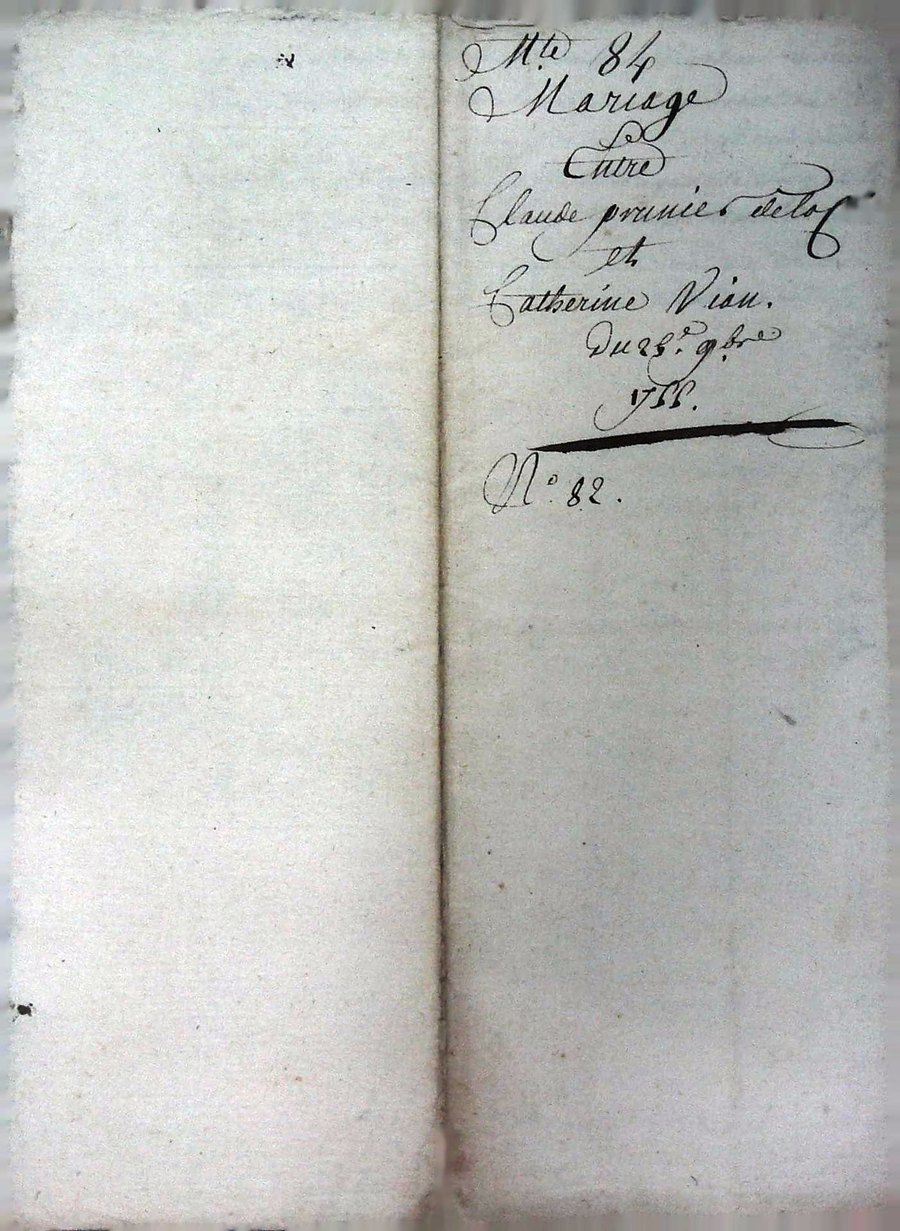 Mte 84
Mariage
Entre
Claude prunier
et
Catherine Vian.
Du 9bre
1755.
N.o 82.